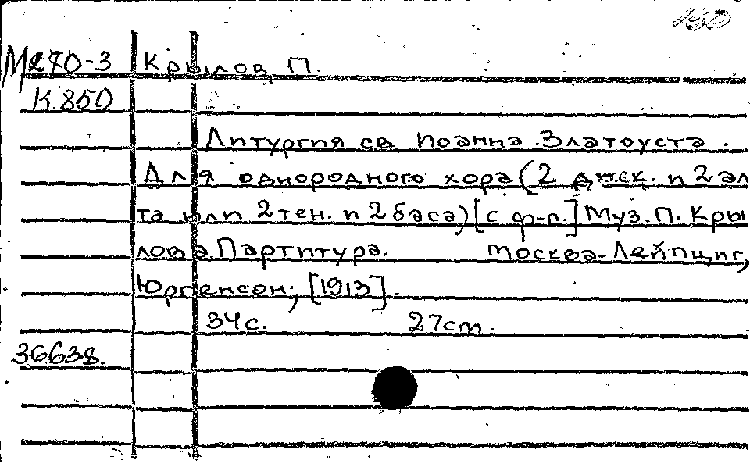 150
М270-3 Крылов, П.
К.850
Литургия св Иоанна Златоуста.
Для однородного хора (2 диск. и 2 аль
та или 2 тен. и 2 баса) [с ф-п.] Муз. П. Кры
лова Партитура. Москва-Лейпциг,
Юргенсон, [1913].
34 с. 27 cm.
36638.